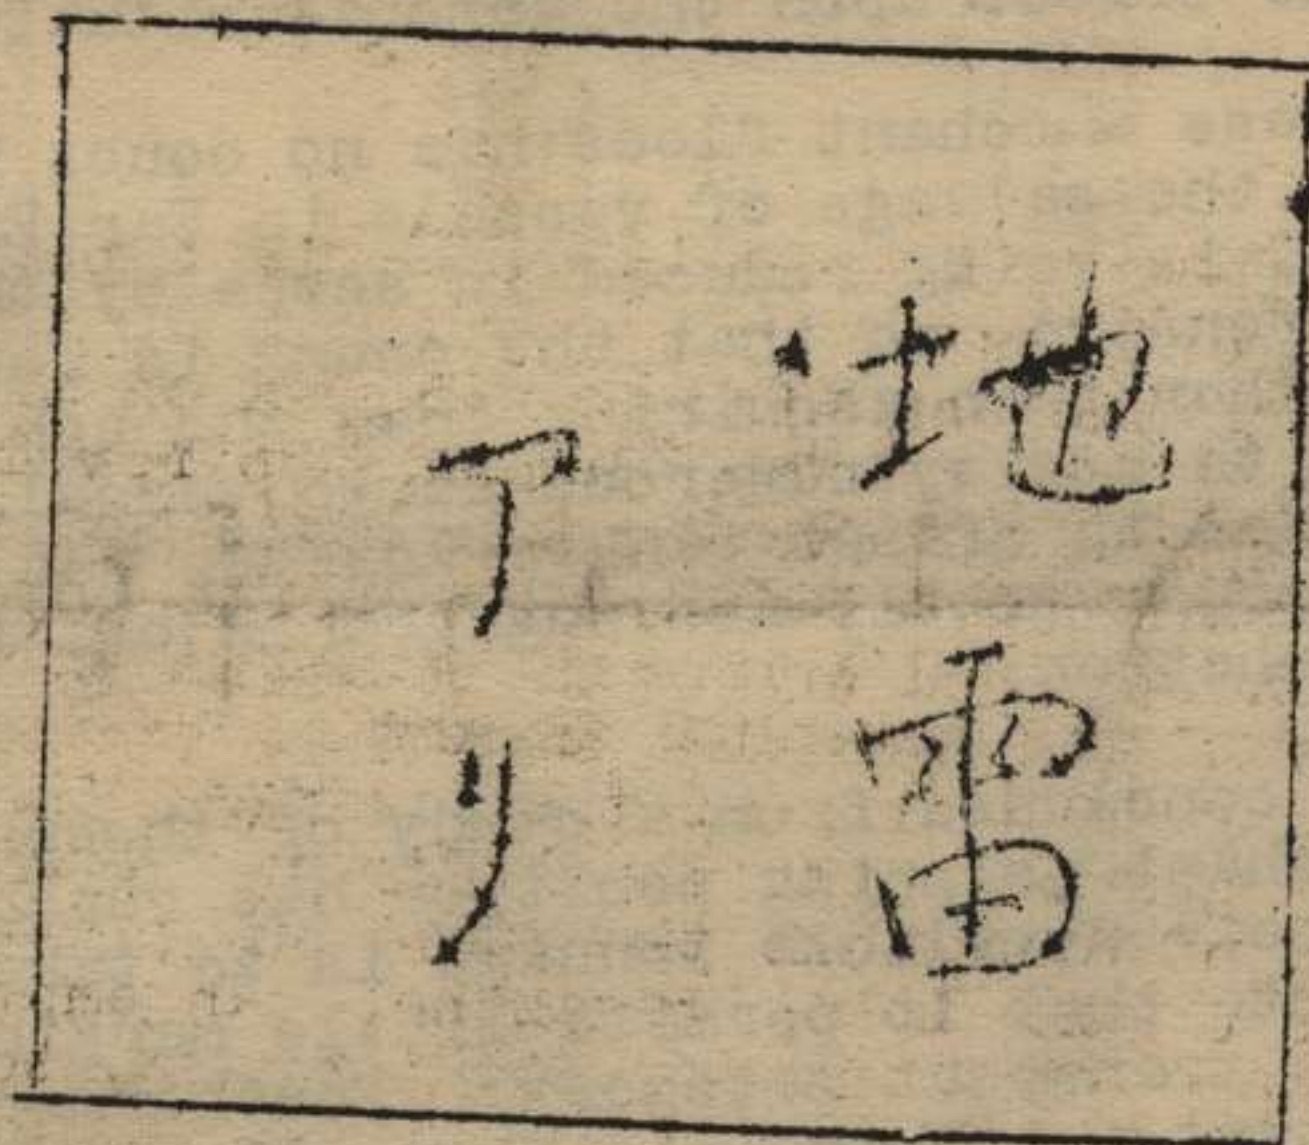 地雷
アリ